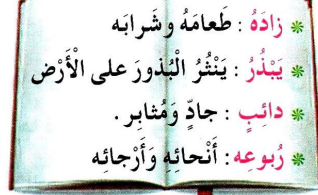 زادَهُ : طَعامَهُ وشَرابَه
يَبْذُرُ : يَنْثُرُ الْبُذورَ على الْأَرْض
دائِبٍ : جادٍّ وَمُثابِر .
رُبوعِه : أَنْحائِه وَأَرْجائِه